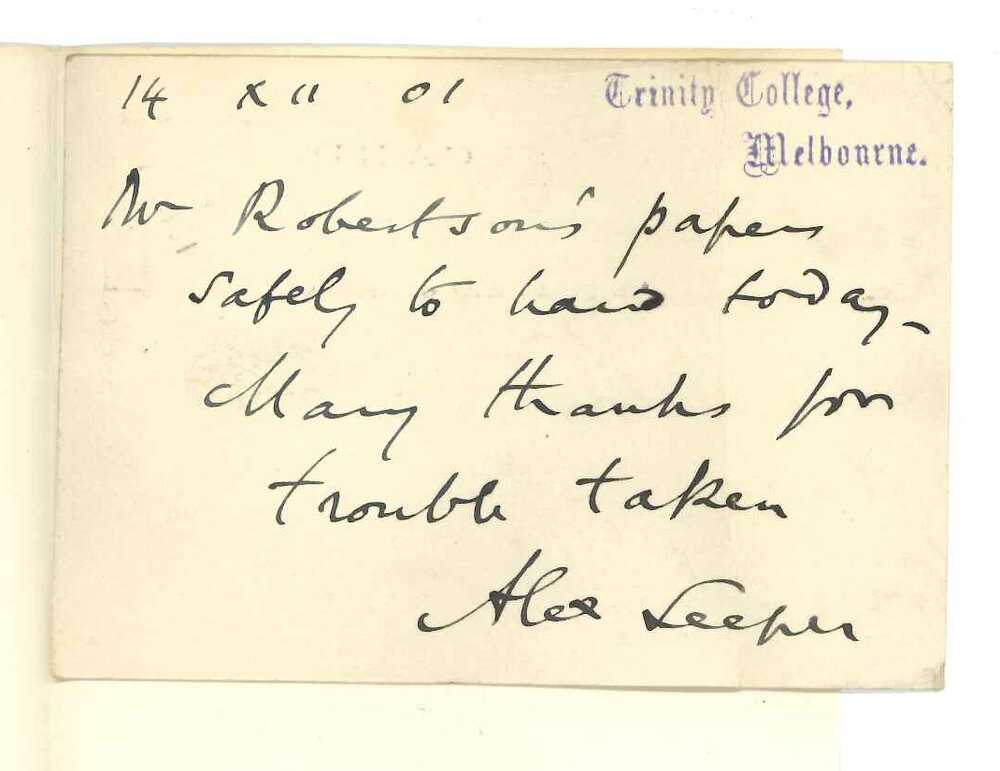 14 XII 01
Trinity College,
Melbourne.
Mr Robertson's papers
safely to hand today -
Many thanks for
trouble taken
Alex Leeper